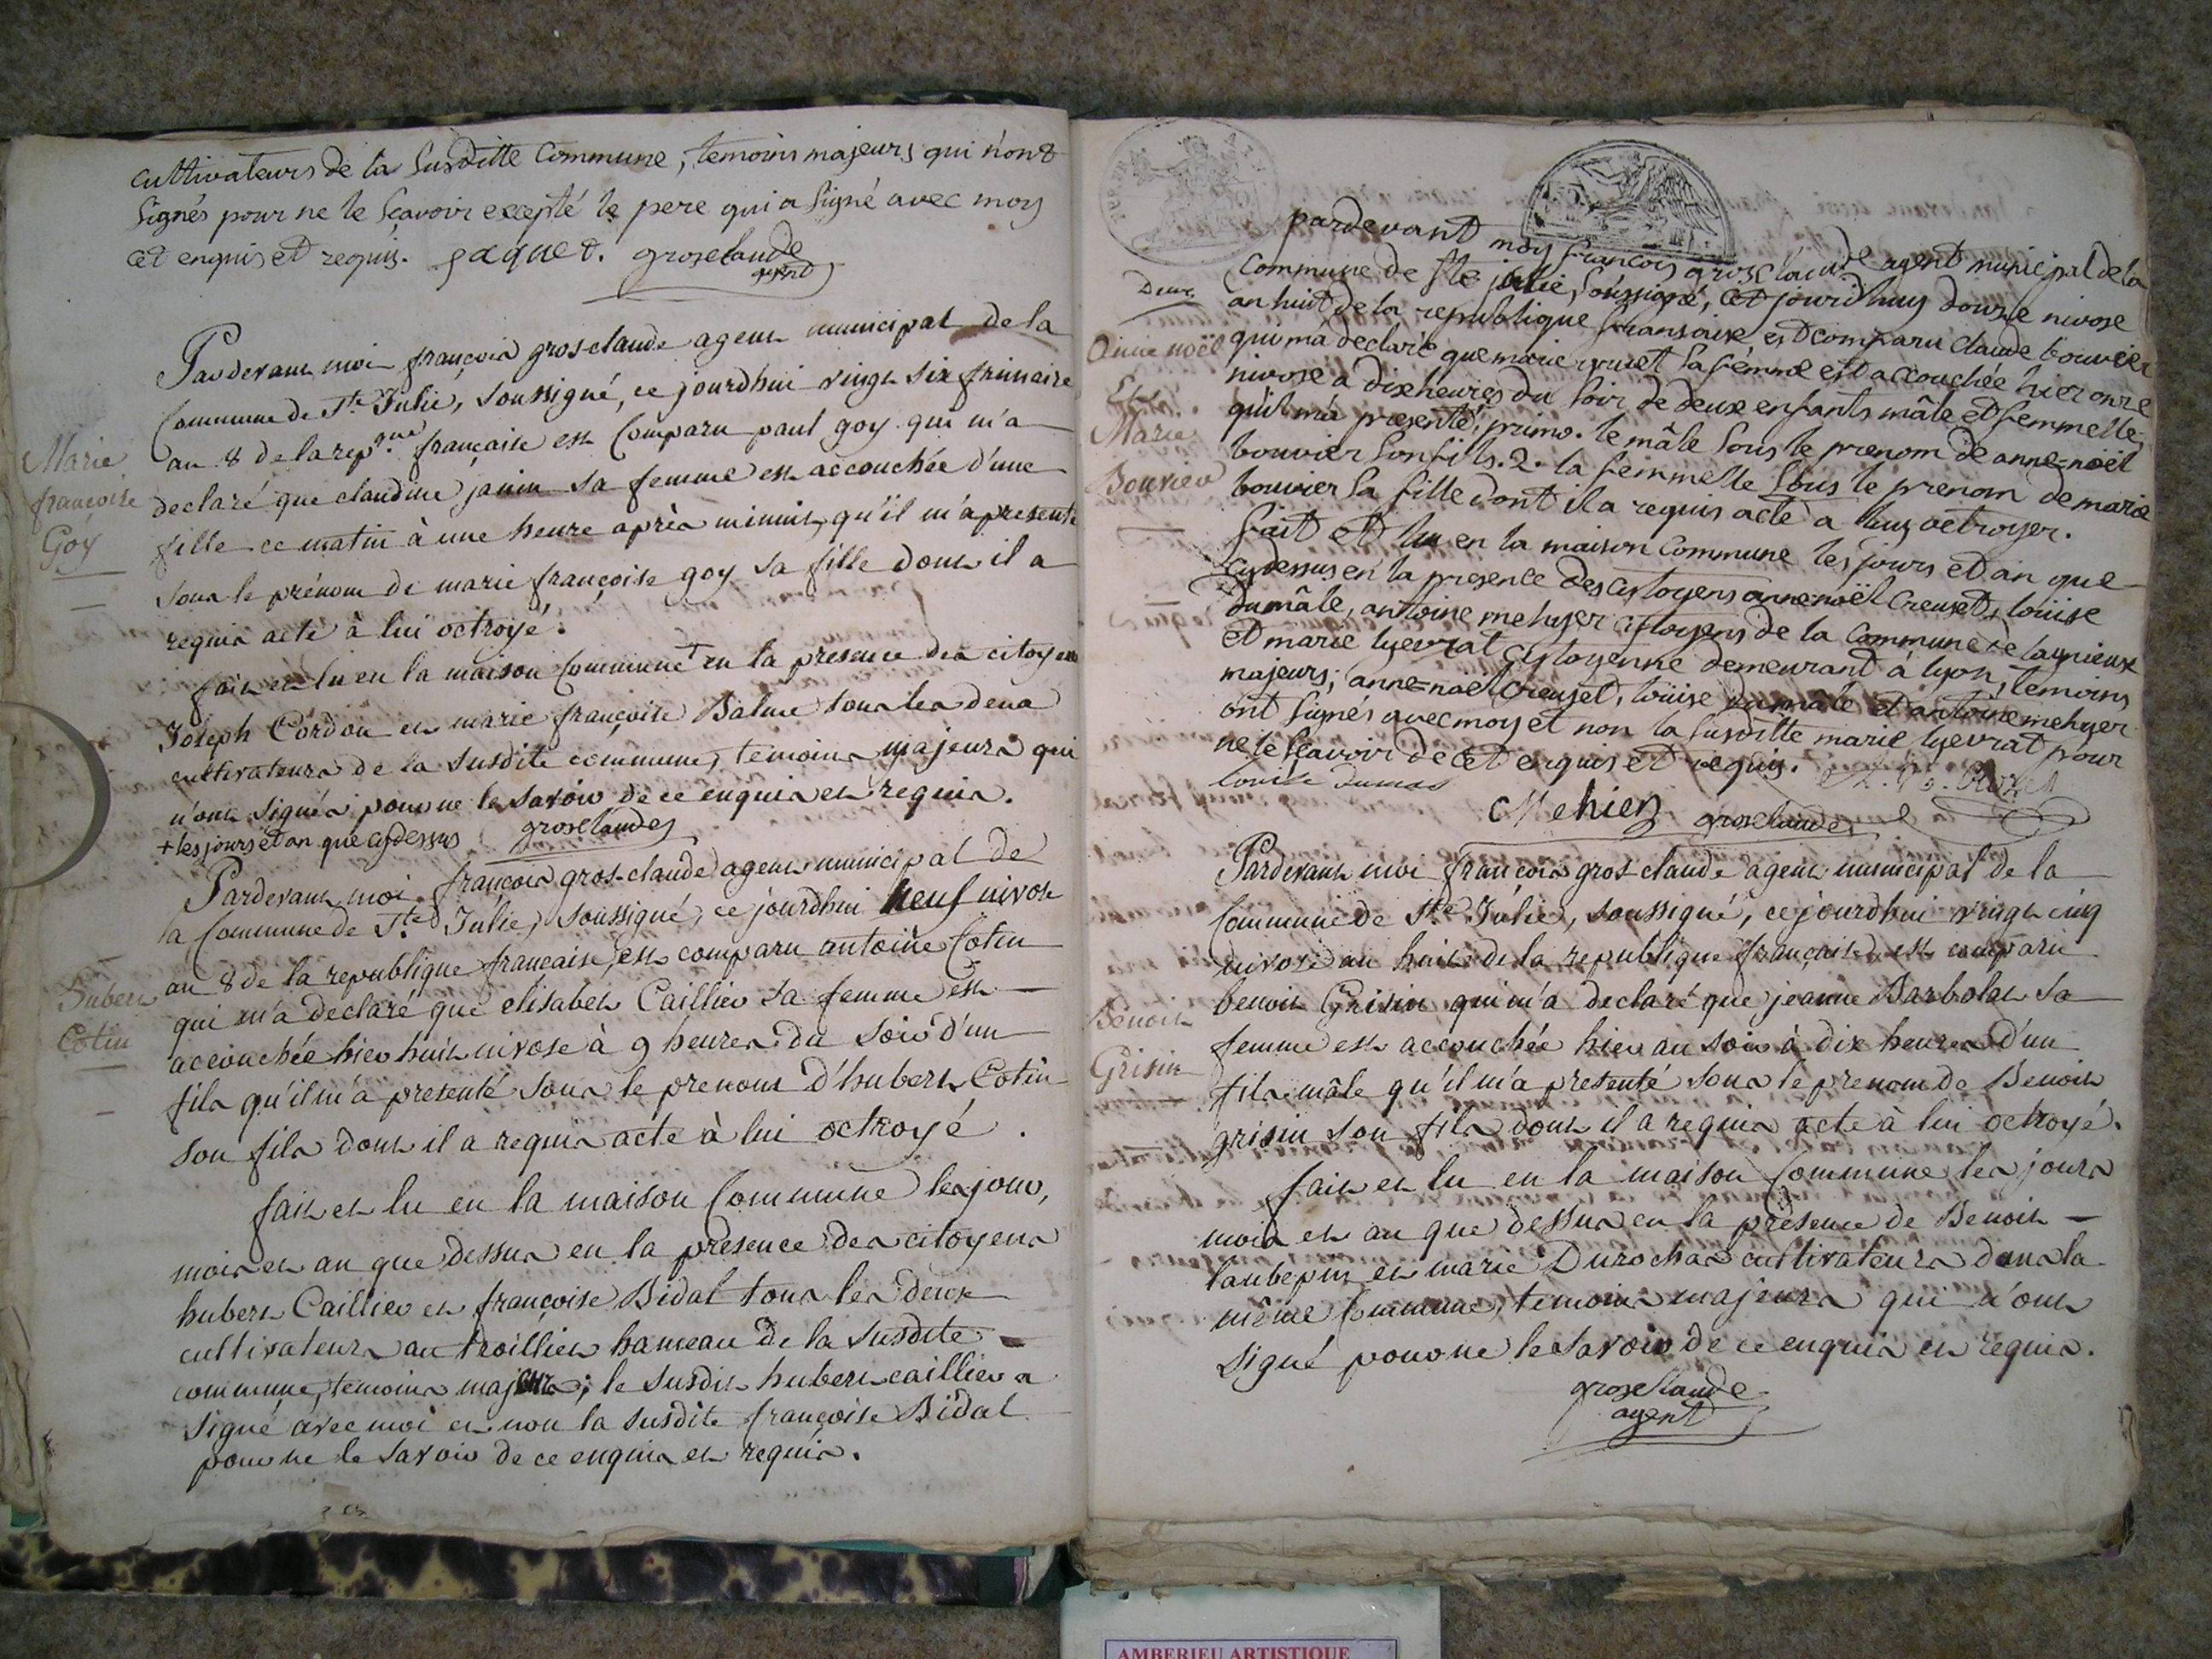 cultivateurs de la Susditte Commune, temoins majeurs qui nont
Signés pour ne le Sçavoir excepté le pere qui a Signé avec moy
cet enquis et requis. paquet. grosclaude
agent
Pardevant moi françois gros-claude agent municipal de la
Commune de Ste Julie, soussigné, ce jourdhui vingt six frimaire
an 8 de la repque française est Comparu paul goy qui m'a
declaré que claudine janin sa femme est accouchée d'une
fille ce matin à une heure après minuit, qu'il m'a presenté
sous le prénom de marie françoise goy sa fille dont il a
requis acte à lui octroyé.
Marie
françoise
Goy
fait et lu en la maison Commune + en la presence des citoyens
Joseph Cordon et marie françoise Balme tous les deux
cultivateurs de la susdite commune, temoins majeurs qui
n'ont signés pour ne le savoir de ce enquis et requis.
+ les jours et an que cydessus grosclaude
Pardevant moi françois gros-claude agent municipal de
la Commune de Ste Julie, soussigné, ce jourdhui neuf nivose
an 8 de la republique française, est comparu antoine Cotin
qui m'a declaré que elisabet Caillier sa femme est
accouchée hier huit nivose à 9 heures du soir d'un
fils qu'il m'a presenté sous le prenom d'hubert Cotin
son fils dont il a requis acte à lui octroyé.
hubert
Cotin
fait et lu en la maison Commune les jour,
mois et an que dessus en la présence des citoyens
hubert Caillier et françoise Bidal tous les deux
cultivateurs au troillier hameau de la susdite
commune, temoins majeurs; le susdit hubert caillier a
signé avec moi et non la susdite françoise Bidal
pour ne le savoir de ce enquis et requis.
pardevant moy françois grosclaude agent municipal de la
Commune de Ste julie, soussigné, cet jourdhuy douze nivose
an huit de la republique fransaise est comparu Claude bouvier
qui ma declaré que marie cruet sa fémme est accouchée hier onze
nivose a dix heures du soir de deux enfants mâle et femmelle,
qu'il ma presenté, primo. le mâle sous le prenom de anne=noël
bouvier son fils. 2. la femmelle sous le prenom de marie
bouvier sa fille dont il a requis acte a luy octroyer.
Deux
Anne noël
Et
Marie
Bouvier
fait et lu en la maison Commune les jours et an que
cydessus en la presence des citoyens anne noël Creuzet, loüise
dumâle, antoine mehyer citoyens de la Commune de lagnieux
et marie lyevrat citoyenne demeurant à lyon, temoins
majeurs; anne=noël Creuzet, loüise dumâle et antoine mehyer
ont signés avec moy et non la susditte marie lyevrat pour
ne le Sçavoir de cet enquis et requis.
Louise dumas
Mehier grosclaude
Pardevant moi françois gros-claude agent municipal de la
Commune de Ste Julie, soussigné, ce jourdhui vingt cinq
nivose an huit de la republique française est comparu
benoit Grisin qui m'a declaré que jeanne Barbolat sa
femme est accouchée hier au soir à dix heures d'un
fils mâle qu'il m'a presenté sous le prenom de Benoit
grisin son fils dont il a requis acte à lui octroyé.
Benoit
Grisin
fait et lu en la maison Commune les jours
mois et an que dessus en la présence de Benoit
laubepin et marie Durochat cultivateurs dans la
même Commune, temoins majeurs qui n'ont
signé pour ne le savoir de ce enquis et requis.
grosclaude
agent
AMBERIEU ARTISTIQUE